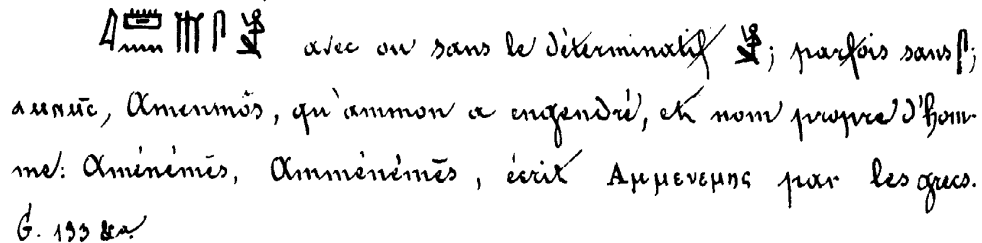 𓇋𓏠𓈖𓄟𓋴 avec ou sans le déterminatif ; parfois sans 𓋴;
ⲁⲙⲛⲙⲥ, Amenmôs, qu'ammon a engendré, et nom propre d'hom-
me: Aménémēs, Amménémēs, écrit Αμμενεμης par les grecs.
G. 133 &a.